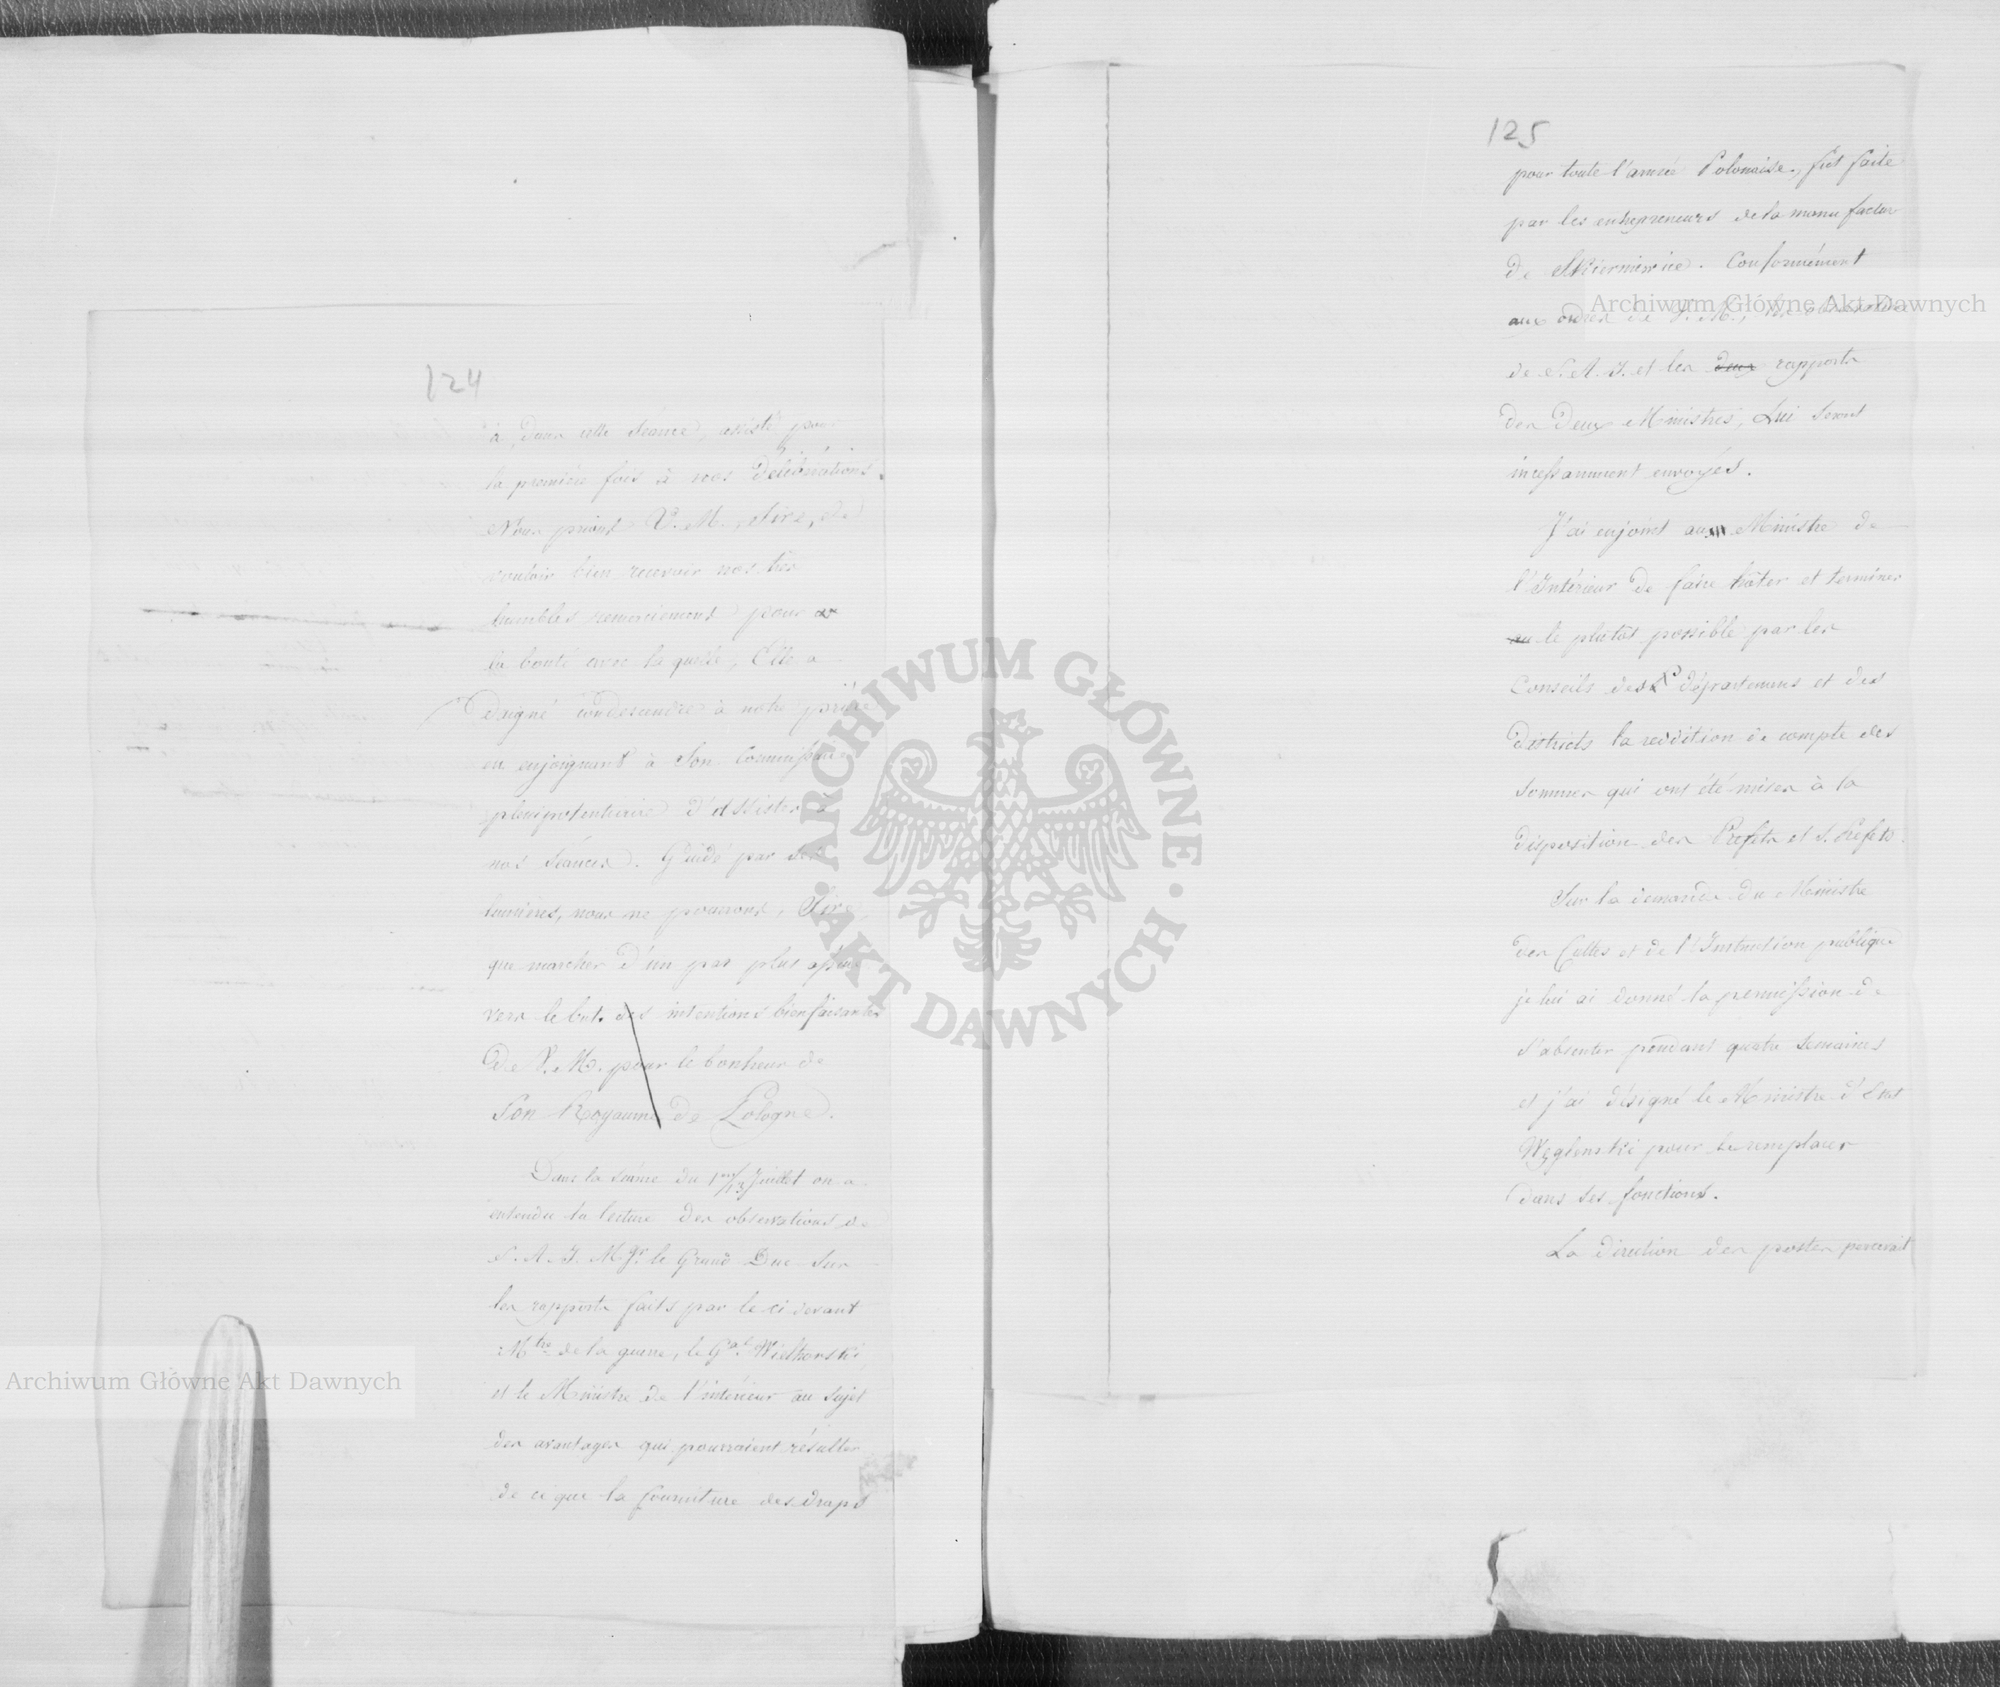 124
à, dans cette séance, assisté pour
la première fois à nos délibérations.
Nous prions V. M., Sire, de
vouloir bien recevoir nos très
humbles remerciemens pour
la bonté avec la quelle, Elle a
daigné condescendre à notre prière
en enjoignant à Son Commissaire
plenipotentiaire d'assister à
nos séances. Guidé par ses
lumières, nous ne pourrons, Sire,
que marcher d'un pas plus assuré
vers le but des intentions bienfaisantes
de V. M. pour le bonheur de
Son Royaume de Pologne.
Dans la séance du 1er/13 Juillet on a
entendu la lecture des observations de
S. A. I. Mgr. le Grand Duc sur
les rapports faits par le ci devant
Mtre de la guerre, le Gal. Wielhorski,
et le Ministre de l'intérieur au sujet
des avantages qui pourraient résulter
de ce que la fourniture des draps
125
pour toute l'armée Polonaise, fut faite
par les entrepreneurs de la manufacture
de Skierniewice. Conformément
aux ordres de V. M., les observations
de S. A. I. et les deux rapports
des deux Ministres, Lui seront
incessamment envoyés.
J'ai enjoint au Ministre de
l'Intérieur de faire hâter et terminer
le plutôt possible par les
Conseils des départemens et des
districts la reddition de compte des
sommes qui ont été mises à la
disposition des Prefets et S. Préfets.
Sur la demande du Ministre
des Cultes et de l'Instruction publique
je lui ai donné la permission de
s'absenter pendant quatre semaines
et j'ai désigné le Ministre d'Etat
Węgleński pour le remplacer
dans ses fonctions.
La direction des postes percevait
Archiwum Główne Akt Dawnych
Archiwum Główne Akt Dawnych
ARCHIWUM GŁÓWNE
AKT DAWNYCH